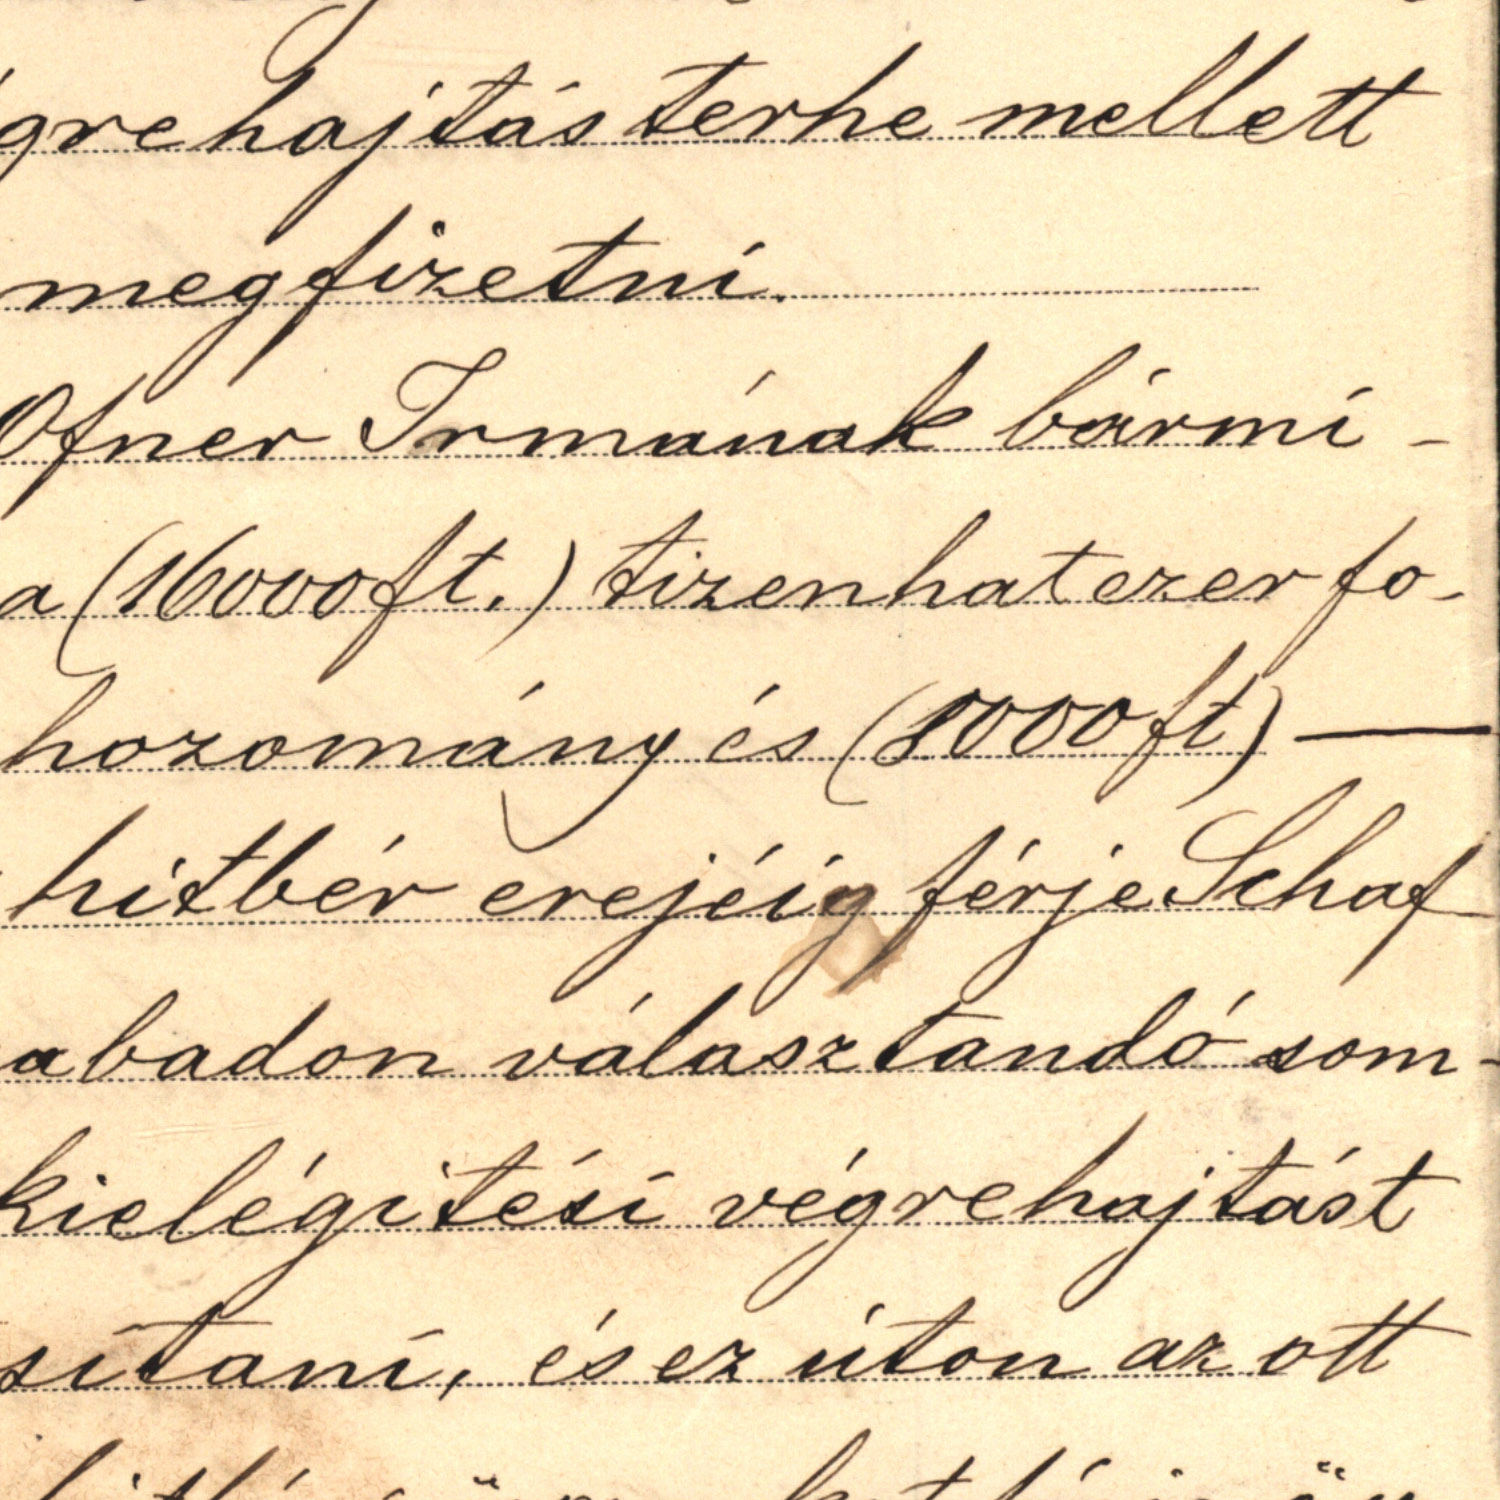 grehajtás terhe mellett
megfizetni.
Ofner Irmának bármi-
a (16000 ft.) tizenhatezer fo-
hozomány és (8000 ft) —
hitbér erejéig férje Schaf
abadon választandó som-
kielégitési végrehajtást
sítani, és ez úton az ott